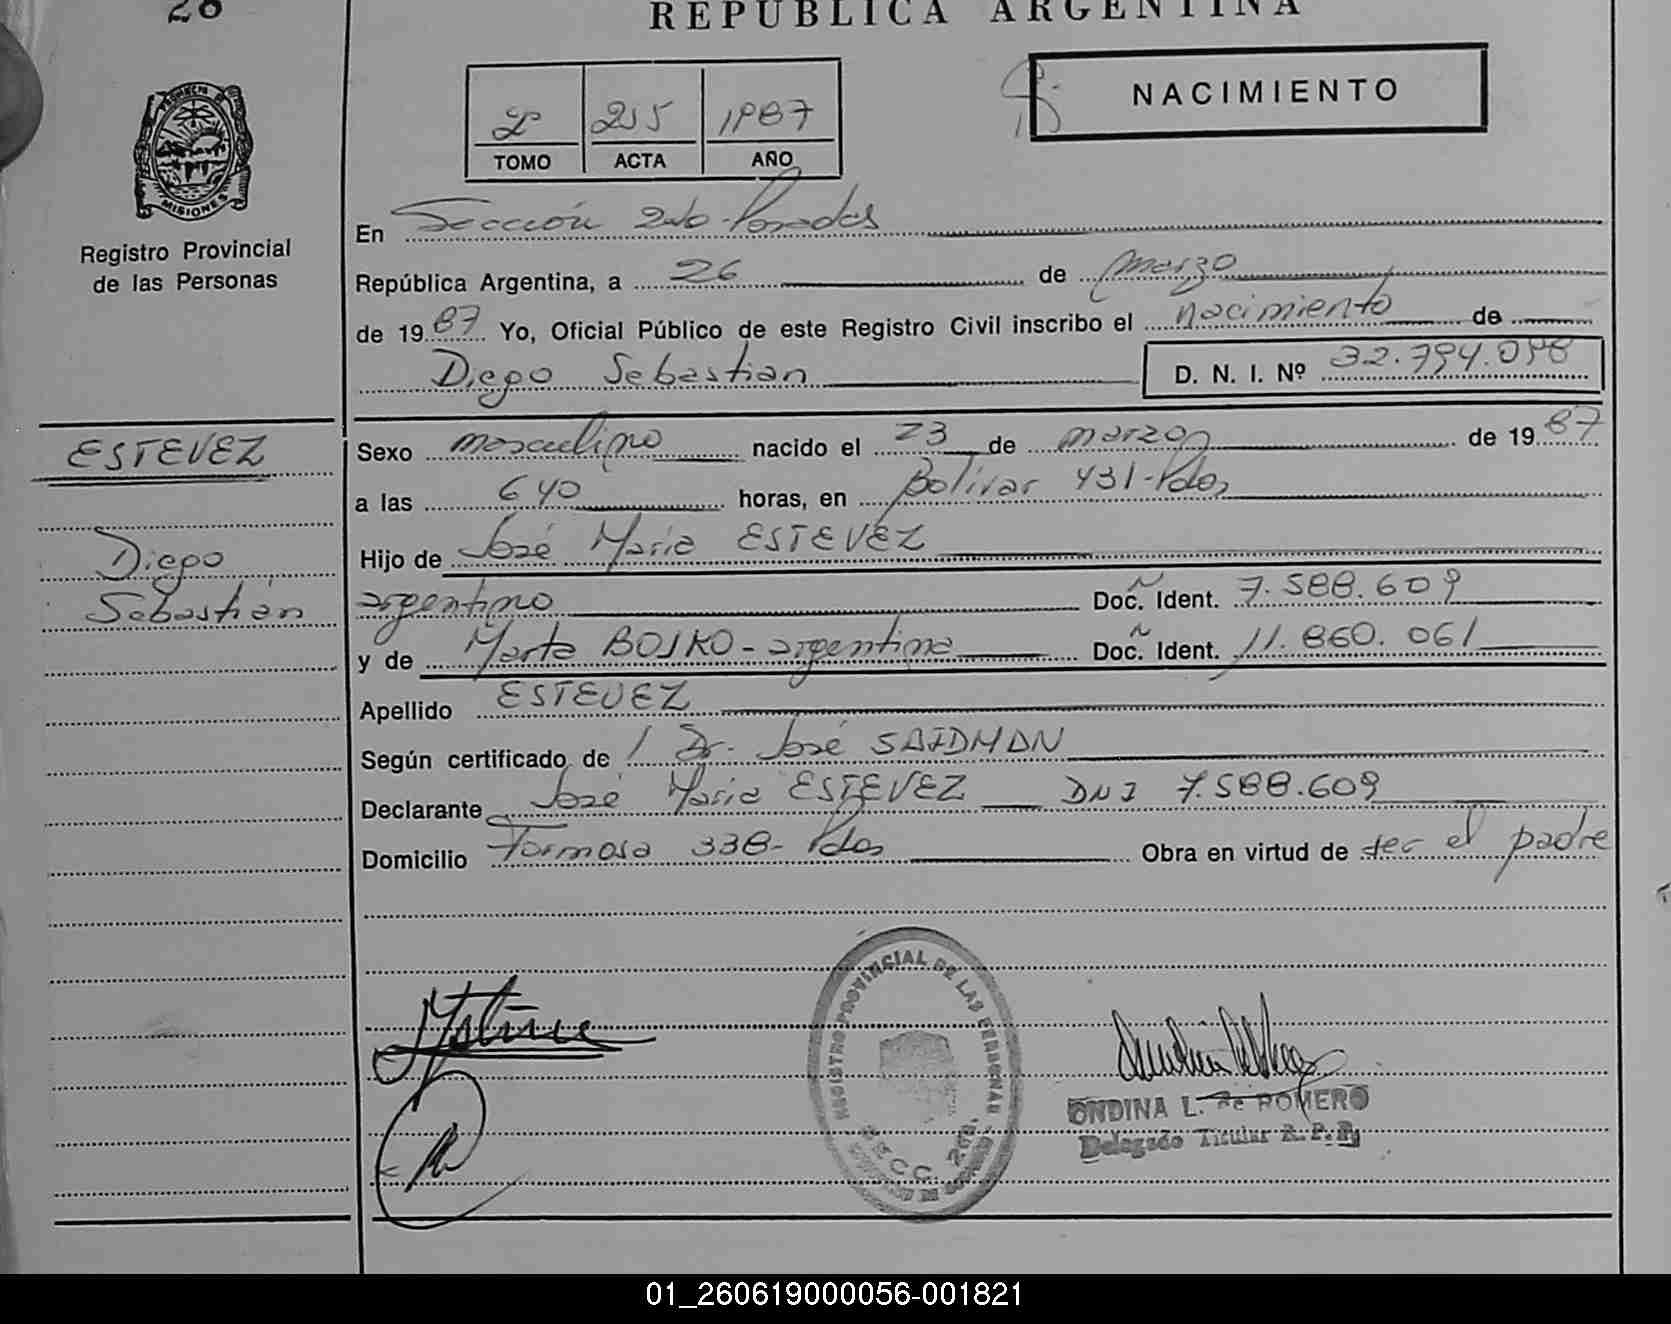 28
REPUBLICA ARGENTINA
NACIMIENTO
2º 255 1987
TOMO ACTA AÑO
PROVINCIA DE
MISIONES
Registro Provincial
de las Personas
En Sección 2da Posadas
República Argentina, a 26 de marzo
de 1987 Yo, Oficial Público de este Registro Civil inscribo el nacimiento de
Diego Sebastian D. N. I. Nº 32.794.098
ESTEVEZ
Diego
Sebastián
Sexo masculino nacido el 23 de marzo de 1987
a las 640 horas, en Bolívar 431-Pdas
Hijo de José María ESTEVEZ
argentino Doc. Ident. 7.588.609
y de Marta BOJKO - argentina Doc. Ident. 11.860.061
Apellido ESTEVEZ
Según certificado de / Dr. José SAIDMAN
Declarante José María ESTEVEZ DNI 7.588.609
Domicilio Formosa 338- Pdas Obra en virtud de ser el padre
REGISTRO PROVINCIAL DE LAS PERSONAS
SECC. 2da.
ONDINA L. de ROMERO
Delegado Titular R. P. P.
01_260619000056-001821